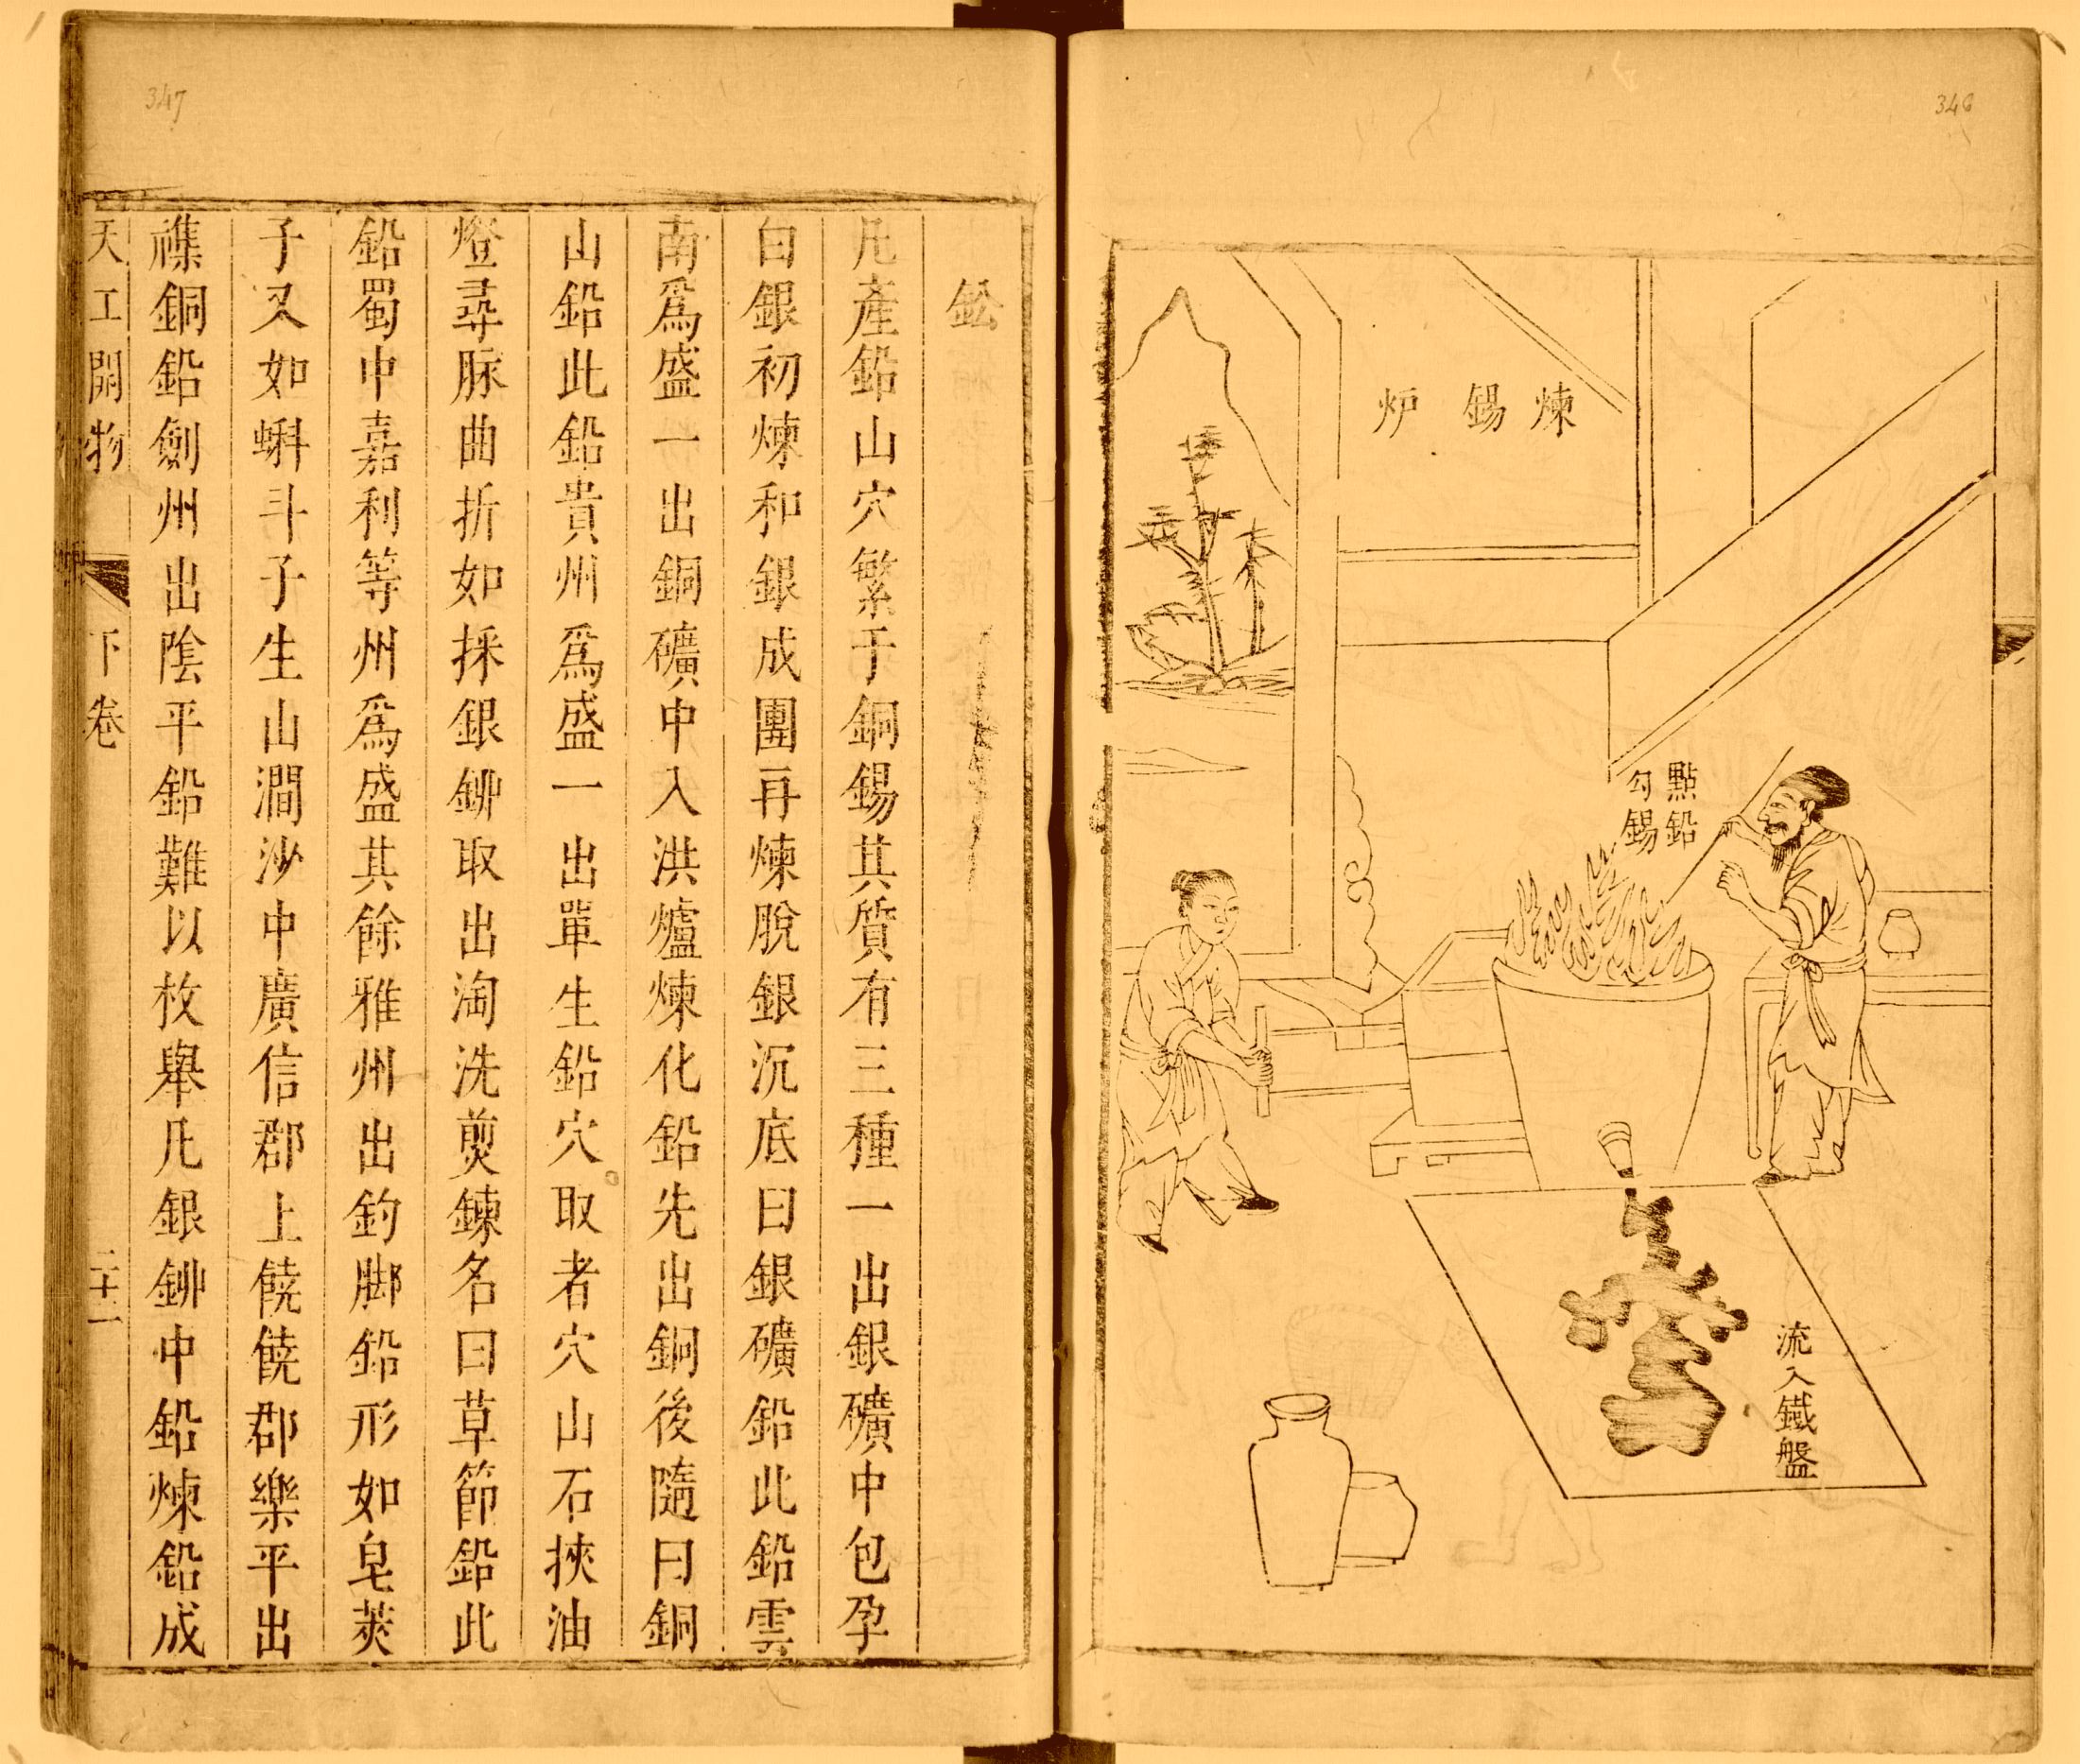 348
煉錫炉
點鉛
勾錫
流入鐵盤
347
鈆
凡產鉛山穴繁于銅錫其質有三種一出銀礦中包孕
白銀初煉和銀成團再煉脫銀沉底曰銀礦鉛此鉛雲
南爲盛一出銅礦中入洪爐煉化鉛先出銅後隨曰銅
山鉛此鉛貴州爲盛一出單生鉛穴取者穴山石挾油
燈尋脉曲折如採銀鉚取出淘洗煎鍊名曰草節鉛此
鉛蜀中嘉利等州爲盛其餘雅州出釣脚鉛形如皂莢
子又如蝌斗子生山澗沙中廣信郡上饒饒郡樂平出
襍銅鉛劍州出陰平鉛難以枚舉凡銀鉚中鉛煉鉛成
天工開物 下卷 二十二